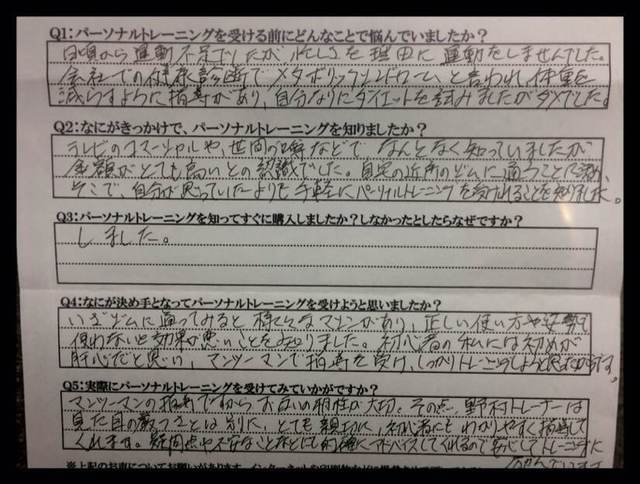 Q1：パーソナルトレーニングを受ける前にどんなことで悩んでいましたか？
日頃から運動不足でしたが、忙しさを理由に運動をしませんでした。
会社での健康診断でメタボリックシンドロームと言われ、体重を
減らすように指導があり、自分なりにダイエットを試みましたがダメでした。
Q2：なにがきっかけで、パーソナルトレーニングを知りましたか？
テレビのコマーシャルや、世間の噂などで なんとなく知っていましたが
金額がとても高いとの認識でした。自宅の近所のジムに通うことに
そこで、自分が思っていたよりも手軽にパーソナルトレーニングを受けれることを知りました。
Q3：パーソナルトレーニングを知ってすぐに購入しましたか？しなかったとしたらなぜですか？
しました。
Q4：なにが決め手となってパーソナルトレーニングを受けようと思いましたか？
いざジムに通ってみると 様々なマシンがあり、正しい使い方や姿勢で
使わないと効果が悪いことを知りました。初心者の私には初めが
肝心だと思い、マンツーマンで指導を受け、しっかりトレーニングしようと思ったからです。
Q5：実際にパーソナルトレーニングを受けてみていかがですか？
マンツーマンの指導ですから お互いの相性が大切。その点、野村トレーナーは
見た目の厳つさとは別に、とても親切に、初心者にもわかりやすく指導して
くれます。疑問点や不安なことなどにも的確にアドバイスしてくれるので安心してトレーニングに